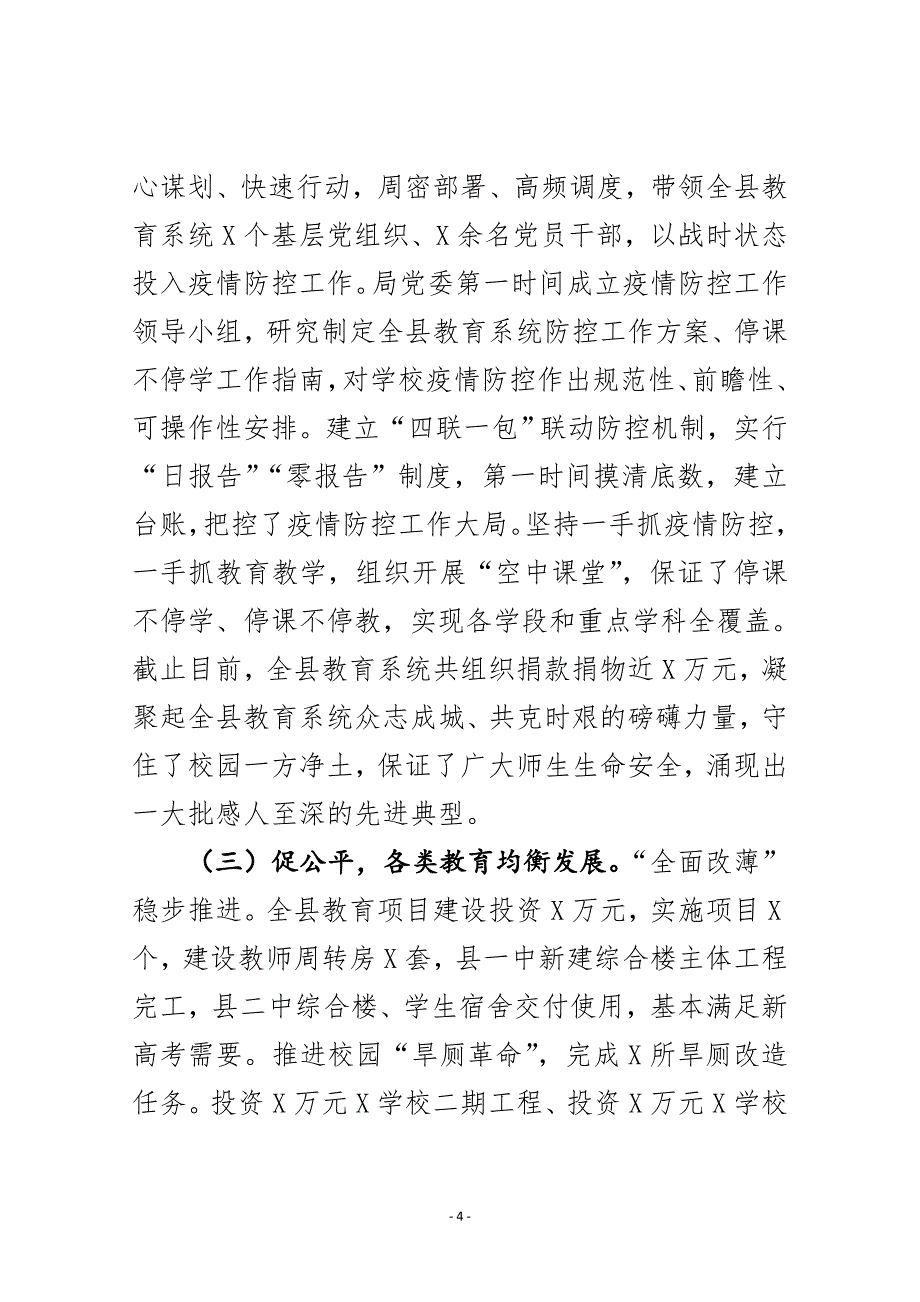 心谋划、快速行动，周密部署、高频调度，带领全县教
育系统X个基层党组织、X余名党员干部，以战时状态
投入疫情防控工作。局党委第一时间成立疫情防控工作
领导小组，研究制定全县教育系统防控工作方案、停课
不停学工作指南，对学校疫情防控作出规范性、前瞻性、
可操作性安排。建立“四联一包”联动防控机制，实行
“日报告”“零报告”制度，第一时间摸清底数，建立
台账，把控了疫情防控工作大局。坚持一手抓疫情防控，
一手抓教育教学，组织开展“空中课堂”，保证了停课
不停学、停课不停教，实现各学段和重点学科全覆盖。
截止目前，全县教育系统共组织捐款捐物近X万元，凝
聚起全县教育系统众志成城、共克时艰的磅礴力量，守
住了校园一方净土，保证了广大师生生命安全，涌现出
一大批感人至深的先进典型。
（三）促公平，各类教育均衡发展。“全面改薄”
稳步推进。全县教育项目建设投资X万元，实施项目X
个，建设教师周转房X套，县一中新建综合楼主体工程
完工，县二中综合楼、学生宿舍交付使用，基本满足新
高考需要。推进校园“旱厕革命”，完成X所旱厕改造
任务。投资X万元X学校二期工程、投资X万元X学校
- 4 -